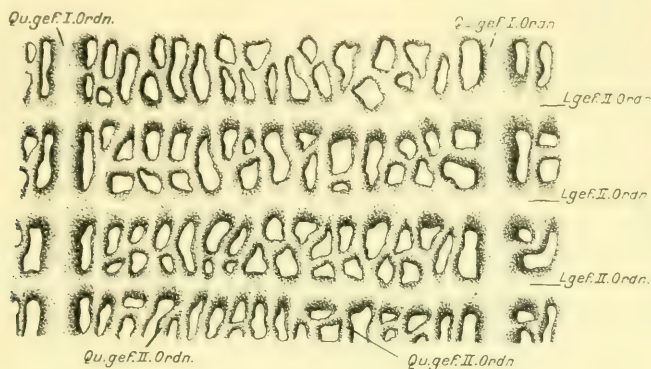 Qu.gef.I.Ordn.
Qu.gef.I.Ordn
L.gef.II.Ordn
L.gef.II.Ordn
L.gef.II.Ordn.
Qu.gef.II.Ordn.
Qu.gef.II.Ordn